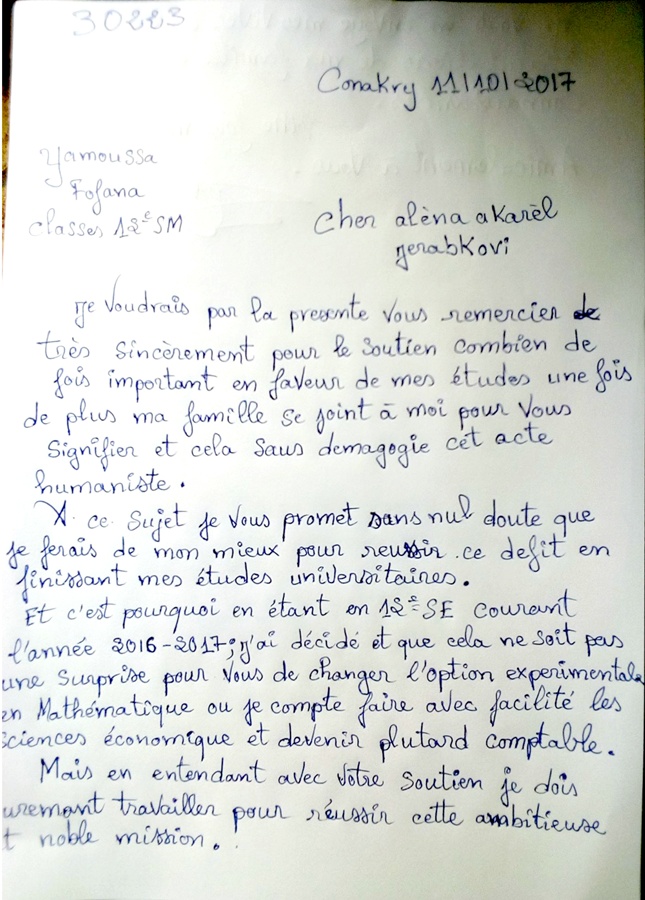 30223
Conakry 11/10/2017
Yamoussa
Fofana
Classes 12e SM
Cher alèna a Karèl
jerabkovi
je voudrais par la presente vous remercier de
très sincèrement pour le soutien combien de
fois important en faveur de mes études une fois
de plus ma famille se joint à moi pour vous
signifier et cela saus demagogie cét acte
humaniste.
A ce sujet je vous promet sans nul doute que
je ferais de mon mieux pour reussir ce defit en
finissant mes études universitaires.
Et c'est pourquoi en étant en 12e SE courant
l'année 2016-2017; j'ai décidé et que cela ne soit pas
une surprise pour vous de changer l'option experimentale
en Mathématique ou je compte faire avec facilité les
sciences économique et devenir plutard comptable.
Mais en entendant avec votre soutien je dois
uremont travailler pour réussir cette ambitieuse
t noble mission.